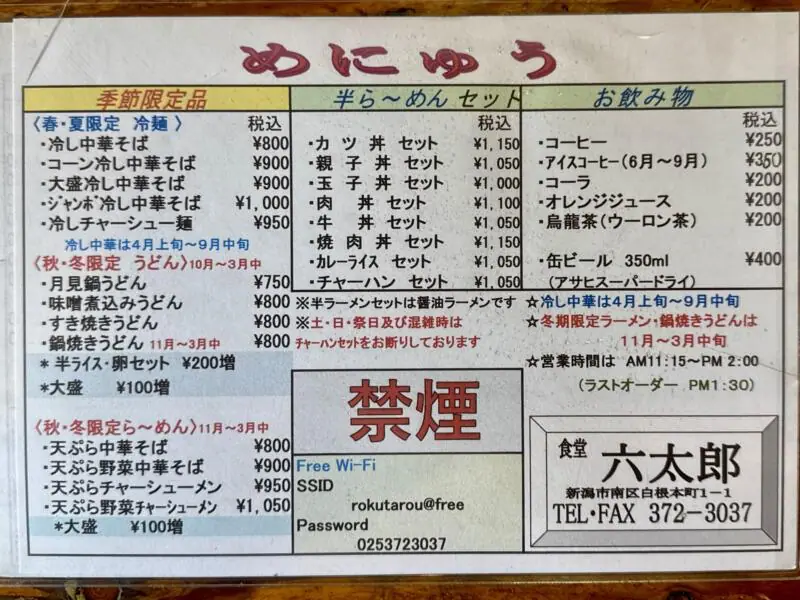 めにゅう
季節限定品
〈春・夏限定 冷麺〉 税込
・冷し中華そば ¥800
・コーン冷し中華そば ¥900
・大盛冷し中華そば ¥900
・ジャンボ冷し中華そば ¥1,000
・冷しチャーシュー麺 ¥950
冷し中華は4月上旬～9月中旬
〈秋・冬限定 うどん〉10月～3月中
・月見鍋うどん ¥750
・味噌煮込みうどん ¥800
・すき焼きうどん ¥800
・鍋焼きうどん 11月～3月中 ¥800
*半ライス・卵セット ¥200増
*大盛 ¥100増
〈秋・冬限定ら～めん〉11月～3月中
・天ぷら中華そば ¥800
・天ぷら野菜中華そば ¥900
・天ぷらチャーシューメン ¥950
・天ぷら野菜チャーシューメン ¥1,050
*大盛 ¥100増
半ら～めん セット
税込
・カツ丼 セット ¥1,150
・親子丼 セット ¥1,050
・玉子丼 セット ¥1,000
・肉丼 セット ¥1,100
・牛丼 セット ¥1,050
・焼肉丼 セット ¥1,150
・カレーライス セット ¥1,050
・チャーハン セット ¥1,050
※半ラーメンセットは醤油ラーメンです
※土・日・祭日及び混雑時は
チャーハンセットをお断りしております
禁煙
Free Wi-Fi
SSID
rokutarou@free
Password
0253723037
お飲み物
税込
・コーヒー ¥250
・アイスコーヒー(6月～9月) ¥350
・コーラ ¥200
・オレンジジュース ¥200
・烏龍茶(ウーロン茶) ¥200
・缶ビール 350ml ¥400
(アサヒスーパードライ)
☆冷し中華は4月上旬～9月中旬
☆冬期限定ラーメン・鍋焼きうどんは
11月～3月中旬
☆営業時間は AM11:15～PM 2:00
(ラストオーダー PM1:30)
食堂 六太郎
新潟市南区白根本町1-1
TEL・FAX 372-3037